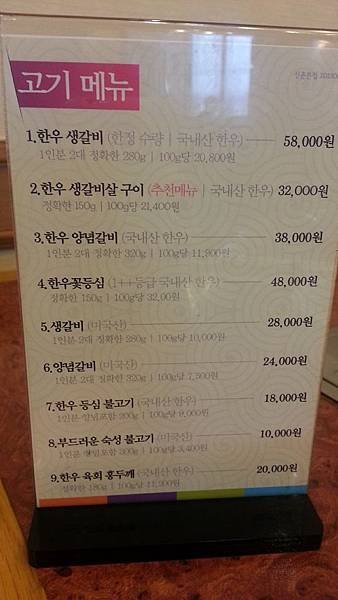 고기 메뉴
신촌본점
1.한우 생갈비 (한정 수량 | 국내산 한우) 58,000원
1인분 2대 정확한 280g | 100g당 20,800원
2.한우 생갈비살 구이 (추천메뉴 | 국내산 한우) 32,000원
정확한 150g | 100g당 21,400원
3.한우 양념갈비 (국내산 한우) 38,000원
1인분 2대 정확한 320g | 100g당 11,900원
4.한우꽃등심 (1++등급 국내산 한우) 48,000원
정확한 150g | 100g당 32,00원
5.생갈비 (미국산) 28,000원
1인분 2대 정확한 280g | 100g당 10,000원
6.양념갈비 (미국산) 24,000원
1인분 2대 정확한 320g | 100g당 7,500원
7.한우 등심 불고기 (국내산 한우) 18,000원
1인분 양념포함 200g | 100g당 9,000원
8.부드러운 숙성 불고기 (미국산) 10,000원
1인분 양념포함 300g | 100g당 3,400원
9.한우 육회 홍두깨 (국내산 한우) 20,000원
정확한 180g | 100g당 11,200원